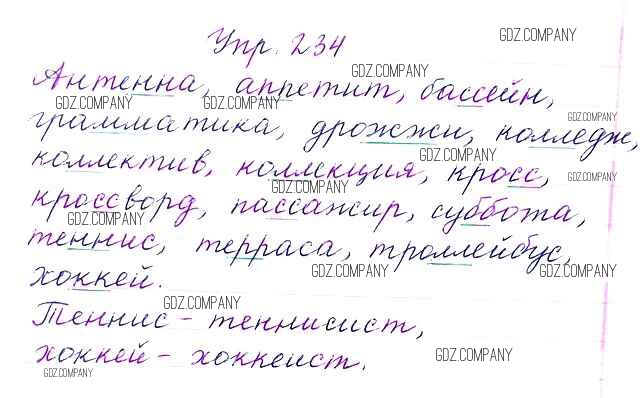 Упр. 234
GDZ.COMPANY
GDZ.COMPANY
Антенна, аппетит, бассейн,
GDZ.COMPANY GDZ.COMPANY GDZ.COMPANY
грамматика, дрожжи, колледж,
GDZ.COMPANY
коллектив, коллекция, кросс,
GDZ.COMPANY GDZ.COMPANY
кроссворд, пассажир, суббота,
GDZ.COMPANY GDZ.COMPANY
теннис, терраса, троллейбус,
GDZ.COMPANY GDZ.COMPANY
хоккей.
GDZ.COMPANY
Теннис - теннисист,
хоккей - хоккеист.
GDZ.COMPANY
GDZ.COMPANY